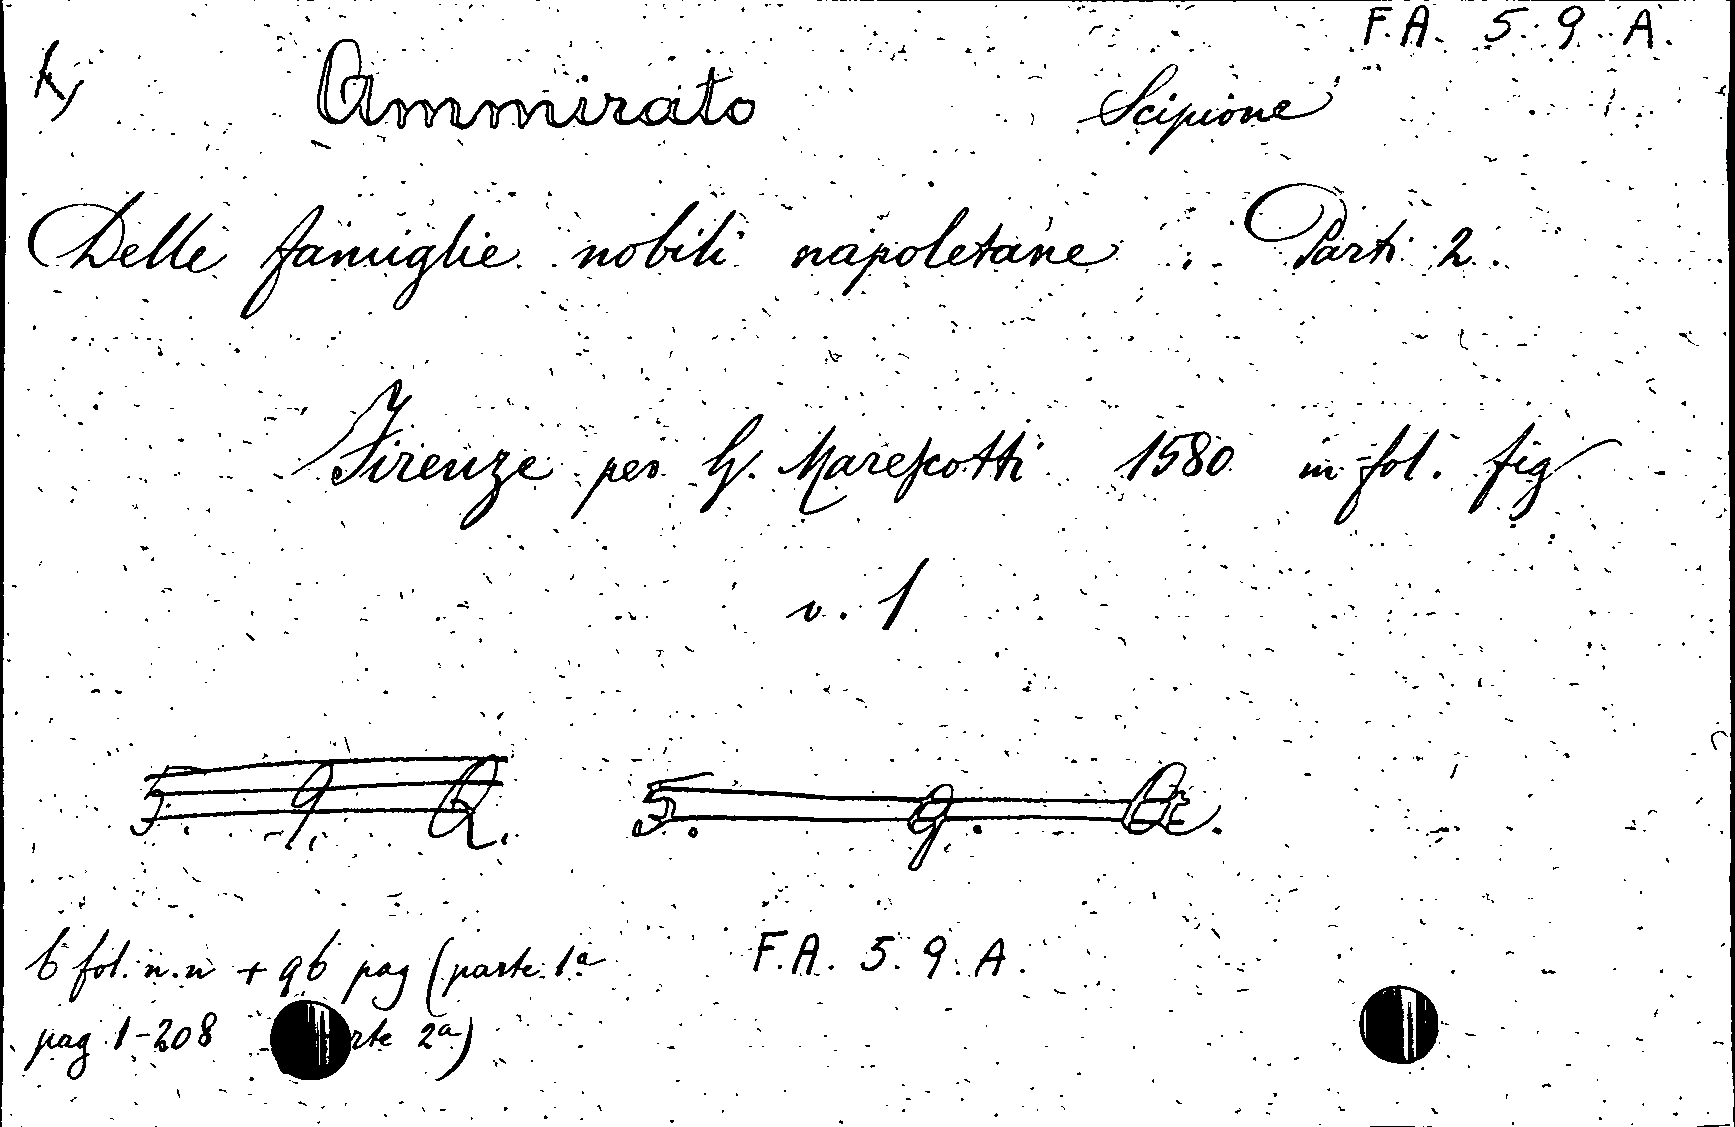 F. A. 5. 9. A.
Ammirato Scipione
Delle famiglie nobili napoletane. Parti 2.
Firenze per G. Marescotti 1580 in fol. fig
v. 1
5. 9. 5. 9.
6 fol. n.n + 96 pag (parte 1ª F.A. 5. 9. A.
pag 1-208 rte 2ª)